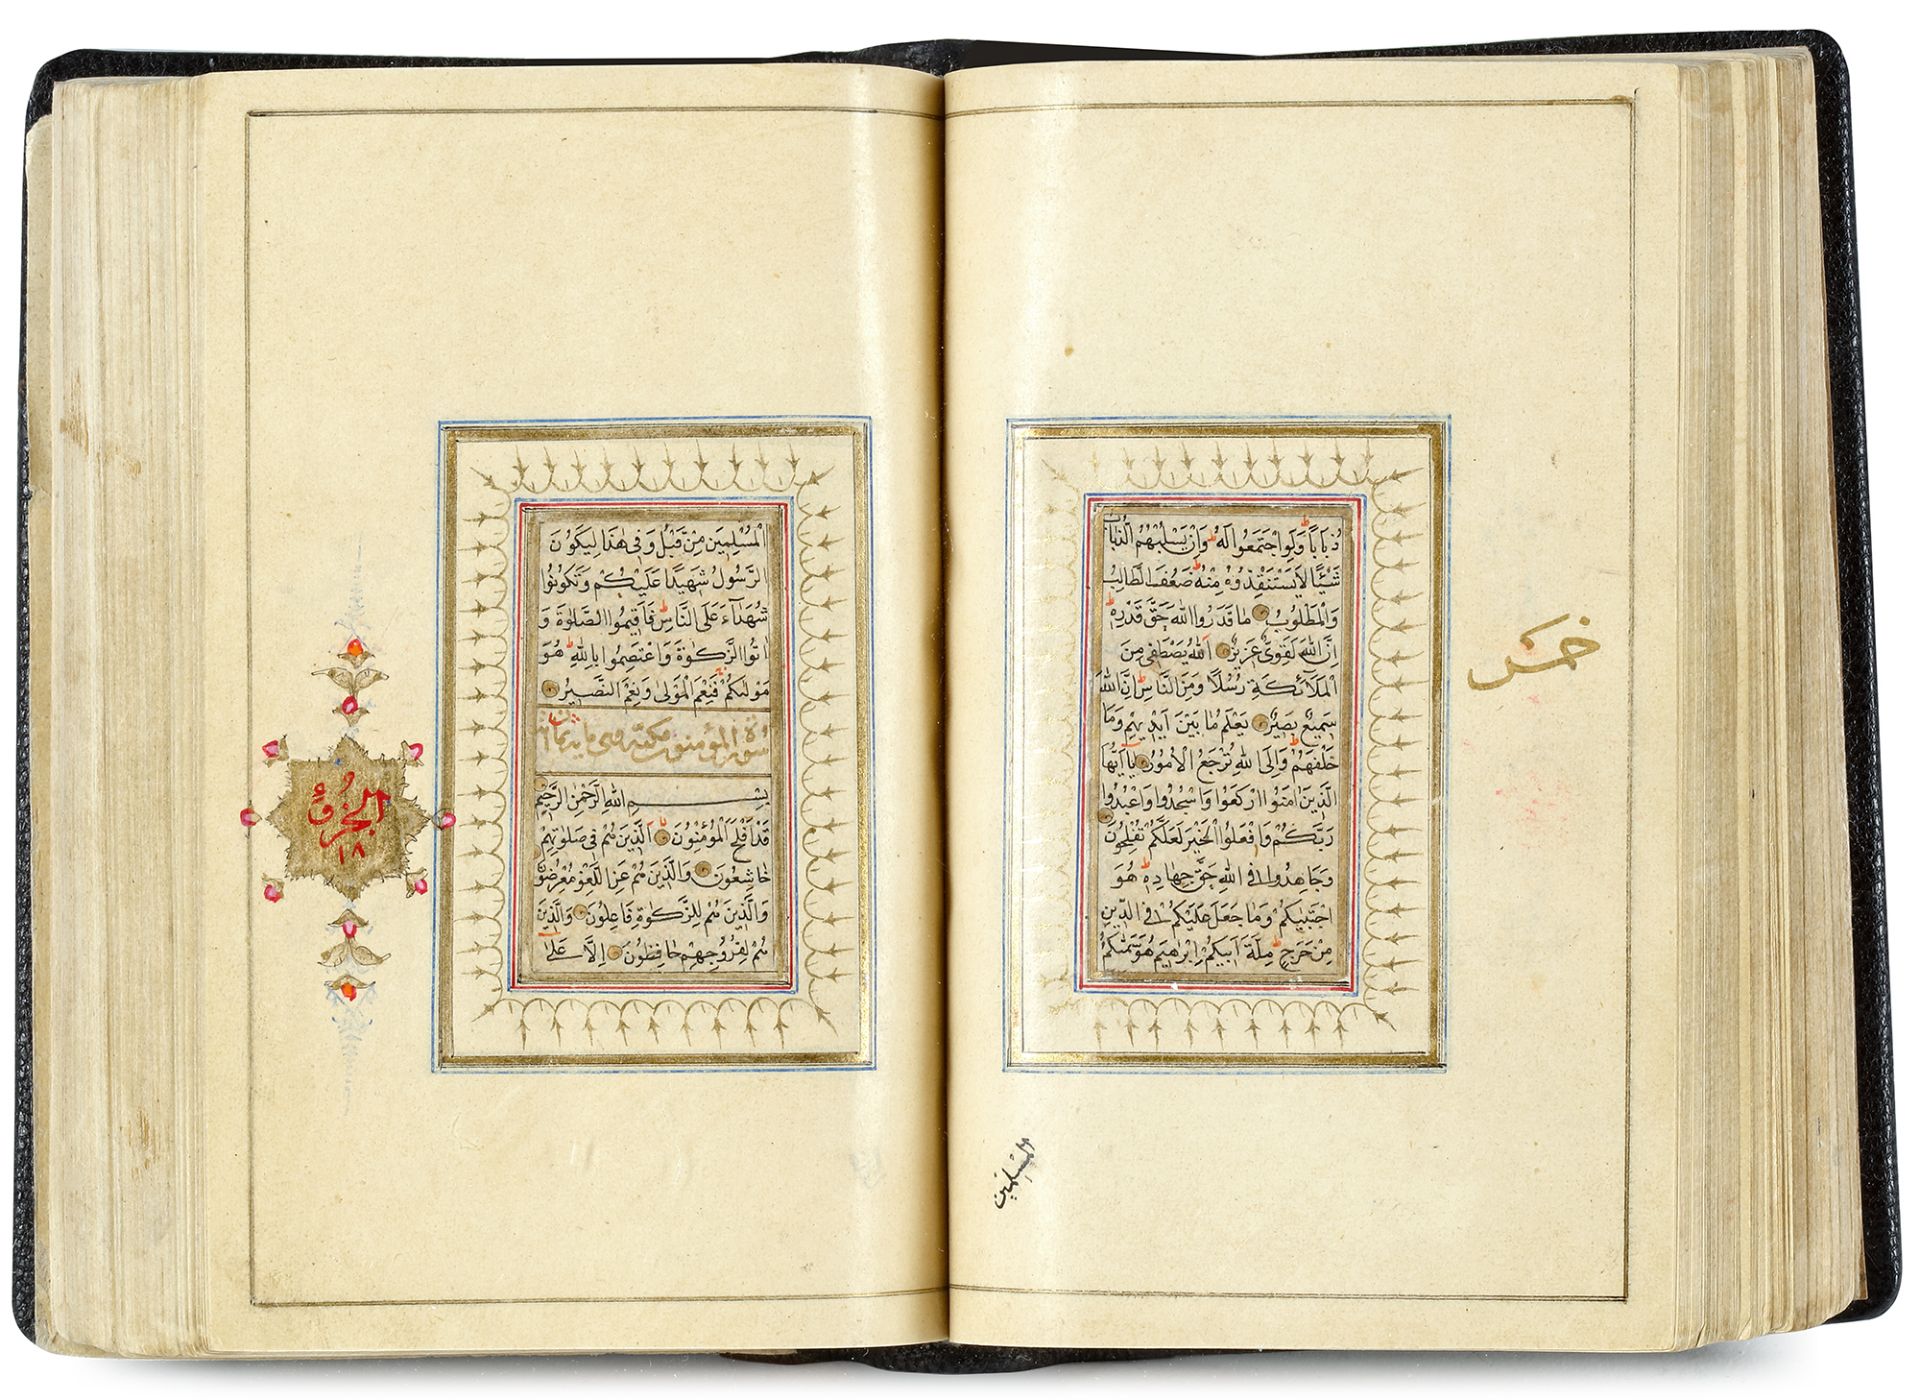 ذُبَابًا وَلَوِ اجْتَمَعُوا لَهُ وَاِنْ يَسْلُبْهُمُ الذُّبَابُ
شَيْئًا لَايَسْتَنْقِذُوهُ مِنْهُ ضَعُفَ الطَّالِبُ
وَالْمَطْلُوبُ مَا قَدَرُوا اللّٰهَ حَقَّ قَدْرِهٖ
اِنَّ اللّٰهَ لَقَوِىٌّ عَزِيزٌ اَللّٰهُ يَصْطَفِى مِنَ
الْمَلَآئِكَةِ رُسُلًا وَمِنَ النَّاسِ اِنَّ اللّٰهَ
سَمِيعٌ بَصِيرٌ يَعْلَمُ مَا بَيْنَ اَيْدِيهِمْ وَمَا
خَلْفَهُمْ وَاِلَى اللّٰهِ تُرْجَعُ الْاُمُورُ يَا اَيُّهَا
الَّذِينَ اٰمَنُوا ارْكَعُوا وَاسْجُدُوا وَاعْبُدُوا
رَبَّكُمْ وَافْعَلُوا الْخَيْرَ لَعَلَّكُمْ تُفْلِحُونَ
وَجَاهِدُوا فِى اللّٰهِ حَقَّ جِهَادِهٖ هُوَ
اجْتَبٰيكُمْ وَمَا جَعَلَ عَلَيْكُمْ فِى الدِّينِ
مِنْ حَرَجٍ مِلَّةَ اَبِيكُمْ اِبْرٰهِيمَ هُوَ سَمّٰيكُمُ
خمس
المسلمين
الْمُسْلِمِينَ مِنْ قَبْلُ وَفِى هٰذَا لِيَكُونَ
الرَّسُولُ شَهِيدًا عَلَيْكُمْ وَتَكُونُوا
شُهَدَآءَ عَلَى النَّاسِ فَاَقِيمُوا الصَّلٰوةَ وَ
اٰتُوا الزَّكٰوةَ وَاعْتَصِمُوا بِاللّٰهِ هُوَ
مَوْلٰيكُمْ فَنِعْمَ الْمَوْلٰى وَنِعْمَ النَّصِيرُ
سورة المؤمنون مكية وهى مايه
بِسْمِ اللّٰهِ الرَّحْمٰنِ الرَّحِيمِ
قَدْ اَفْلَحَ الْمُؤْمِنُونَ اَلَّذِينَ هُمْ فِى صَلٰوتِهِمْ
خَاشِعُونَ وَالَّذِينَ هُمْ عَنِ اللَّغْوِ مُعْرِضُونَ
وَالَّذِينَ هُمْ لِلزَّكٰوةِ فَاعِلُونَ وَالَّذِينَ
هُمْ لِفُرُوجِهِمْ حَافِظُونَ اِلَّا عَلٰى
الجزؤ
١٨